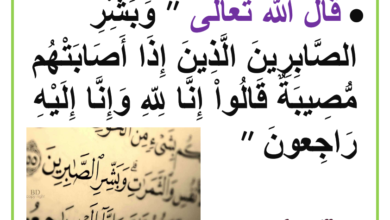 • قال الله تعالى " وَبَشِّرِ
الصَّابِرِينَ الَّذِينَ إِذَا أَصَابَتْهُم
مُّصِيبَةٌ قَالُواْ إِنَّا لِلّهِ وَإِنَّا إِلَيْهِ
رَاجِعونَ "
وَبَشِّرِ الصَّٰبِرِينَ